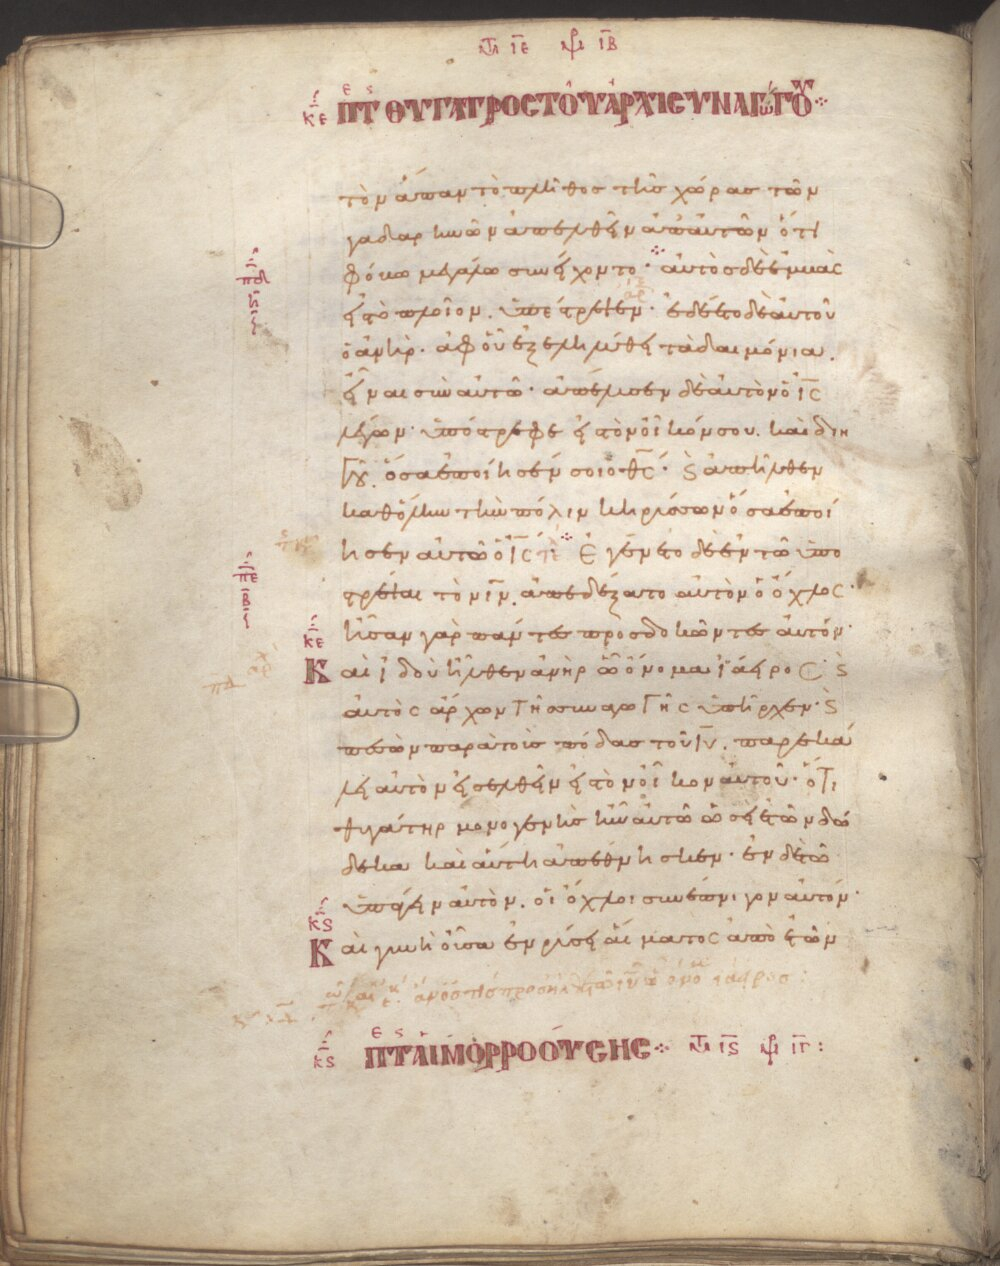 ΜΤ ΙΕ ΜΡ ΙΒ
ΚΕ ΠΕΡΙ Τῆς ΘΥΓΑΤΡΟΣ ΤΟῦ ἈΡΧΙΣΥΝΑΓΩΓΟΥ
τὸν ἅπαν τὸ πλῆθος τῆς χώρας τῶν
γαδαρηνῶν ἀπελθεῖν ἀπ' αὐτῶν ὅτι
φόβω μεγάλω συνείχοντο· αὐτὸς δὲ ἐμβὰς
εἰς τὸ πλοῖον. ὑπέστρεψεν· ἐδέετο δὲ αὐτοῦ
ὁ ἀνὴρ· ἀφ' οὗ ἐξεληλύθει τὰ δαιμόνια.
εἶναι σὺν αὐτῶ· ἀπέλυσεν δὲ αὐτὸν ὁ ις
λέγων· ὑπόστρεφε εἰς τὸν οἶκόν σου. καὶ διη
γοῦ. ὅσα ἐποίησέν σοι ὁ θς· καὶ ἀπῆλθεν
καθ' ὅλην τὴν πόλιν κηρύσσων ὅσα ἐποί
ησεν αὐτῶ ὁ ις Ἐγένετο δὲ ἐν τῶ ὑπο
στρέψαι τὸν ιν. ἀπεδέξατο αὐτὸν ὁ ὄχλος·
ΚΕ
ἦσαν γὰρ πάντες προσδοκῶντες αὐτόν·
Καὶ ἰδοὺ ἦλθεν ἀνὴρ ὧ ὄνομα ἰάειρος· καὶ
αὐτὸς ἄρχων τῆς συναγωγῆς ὑπῆρχεν· καὶ
πεσὼν παρὰ τοὺς πόδας τοῦ ιυ. παρεκά
λει αὐτὸν εἰσελθεῖν εἰς τὸν οἶκον αὐτοῦ· ὅτι
θυγάτηρ μονογενὴς ἦν αὐτῶ ὡσεὶ ἐτῶν δώ
δεκα καὶ αὕτη ἀπέθνησκεν· ἐν δὲ τῶ
ὑπάγειν αὐτὸν. οἱ ὄχλοι συνέπνιγον αὐτόν·
ΚϚ
Καὶ γυνὴ οὖσα ἐν ρύσει αἵματος ἀπὸ ἐτῶν
ΚϚ ΠΕΡΙ Τῆς ΑἱΜΟΡΡΟΟΎΣΗΣ ΜΤ ΙϚ ΜΡ ΙΓ